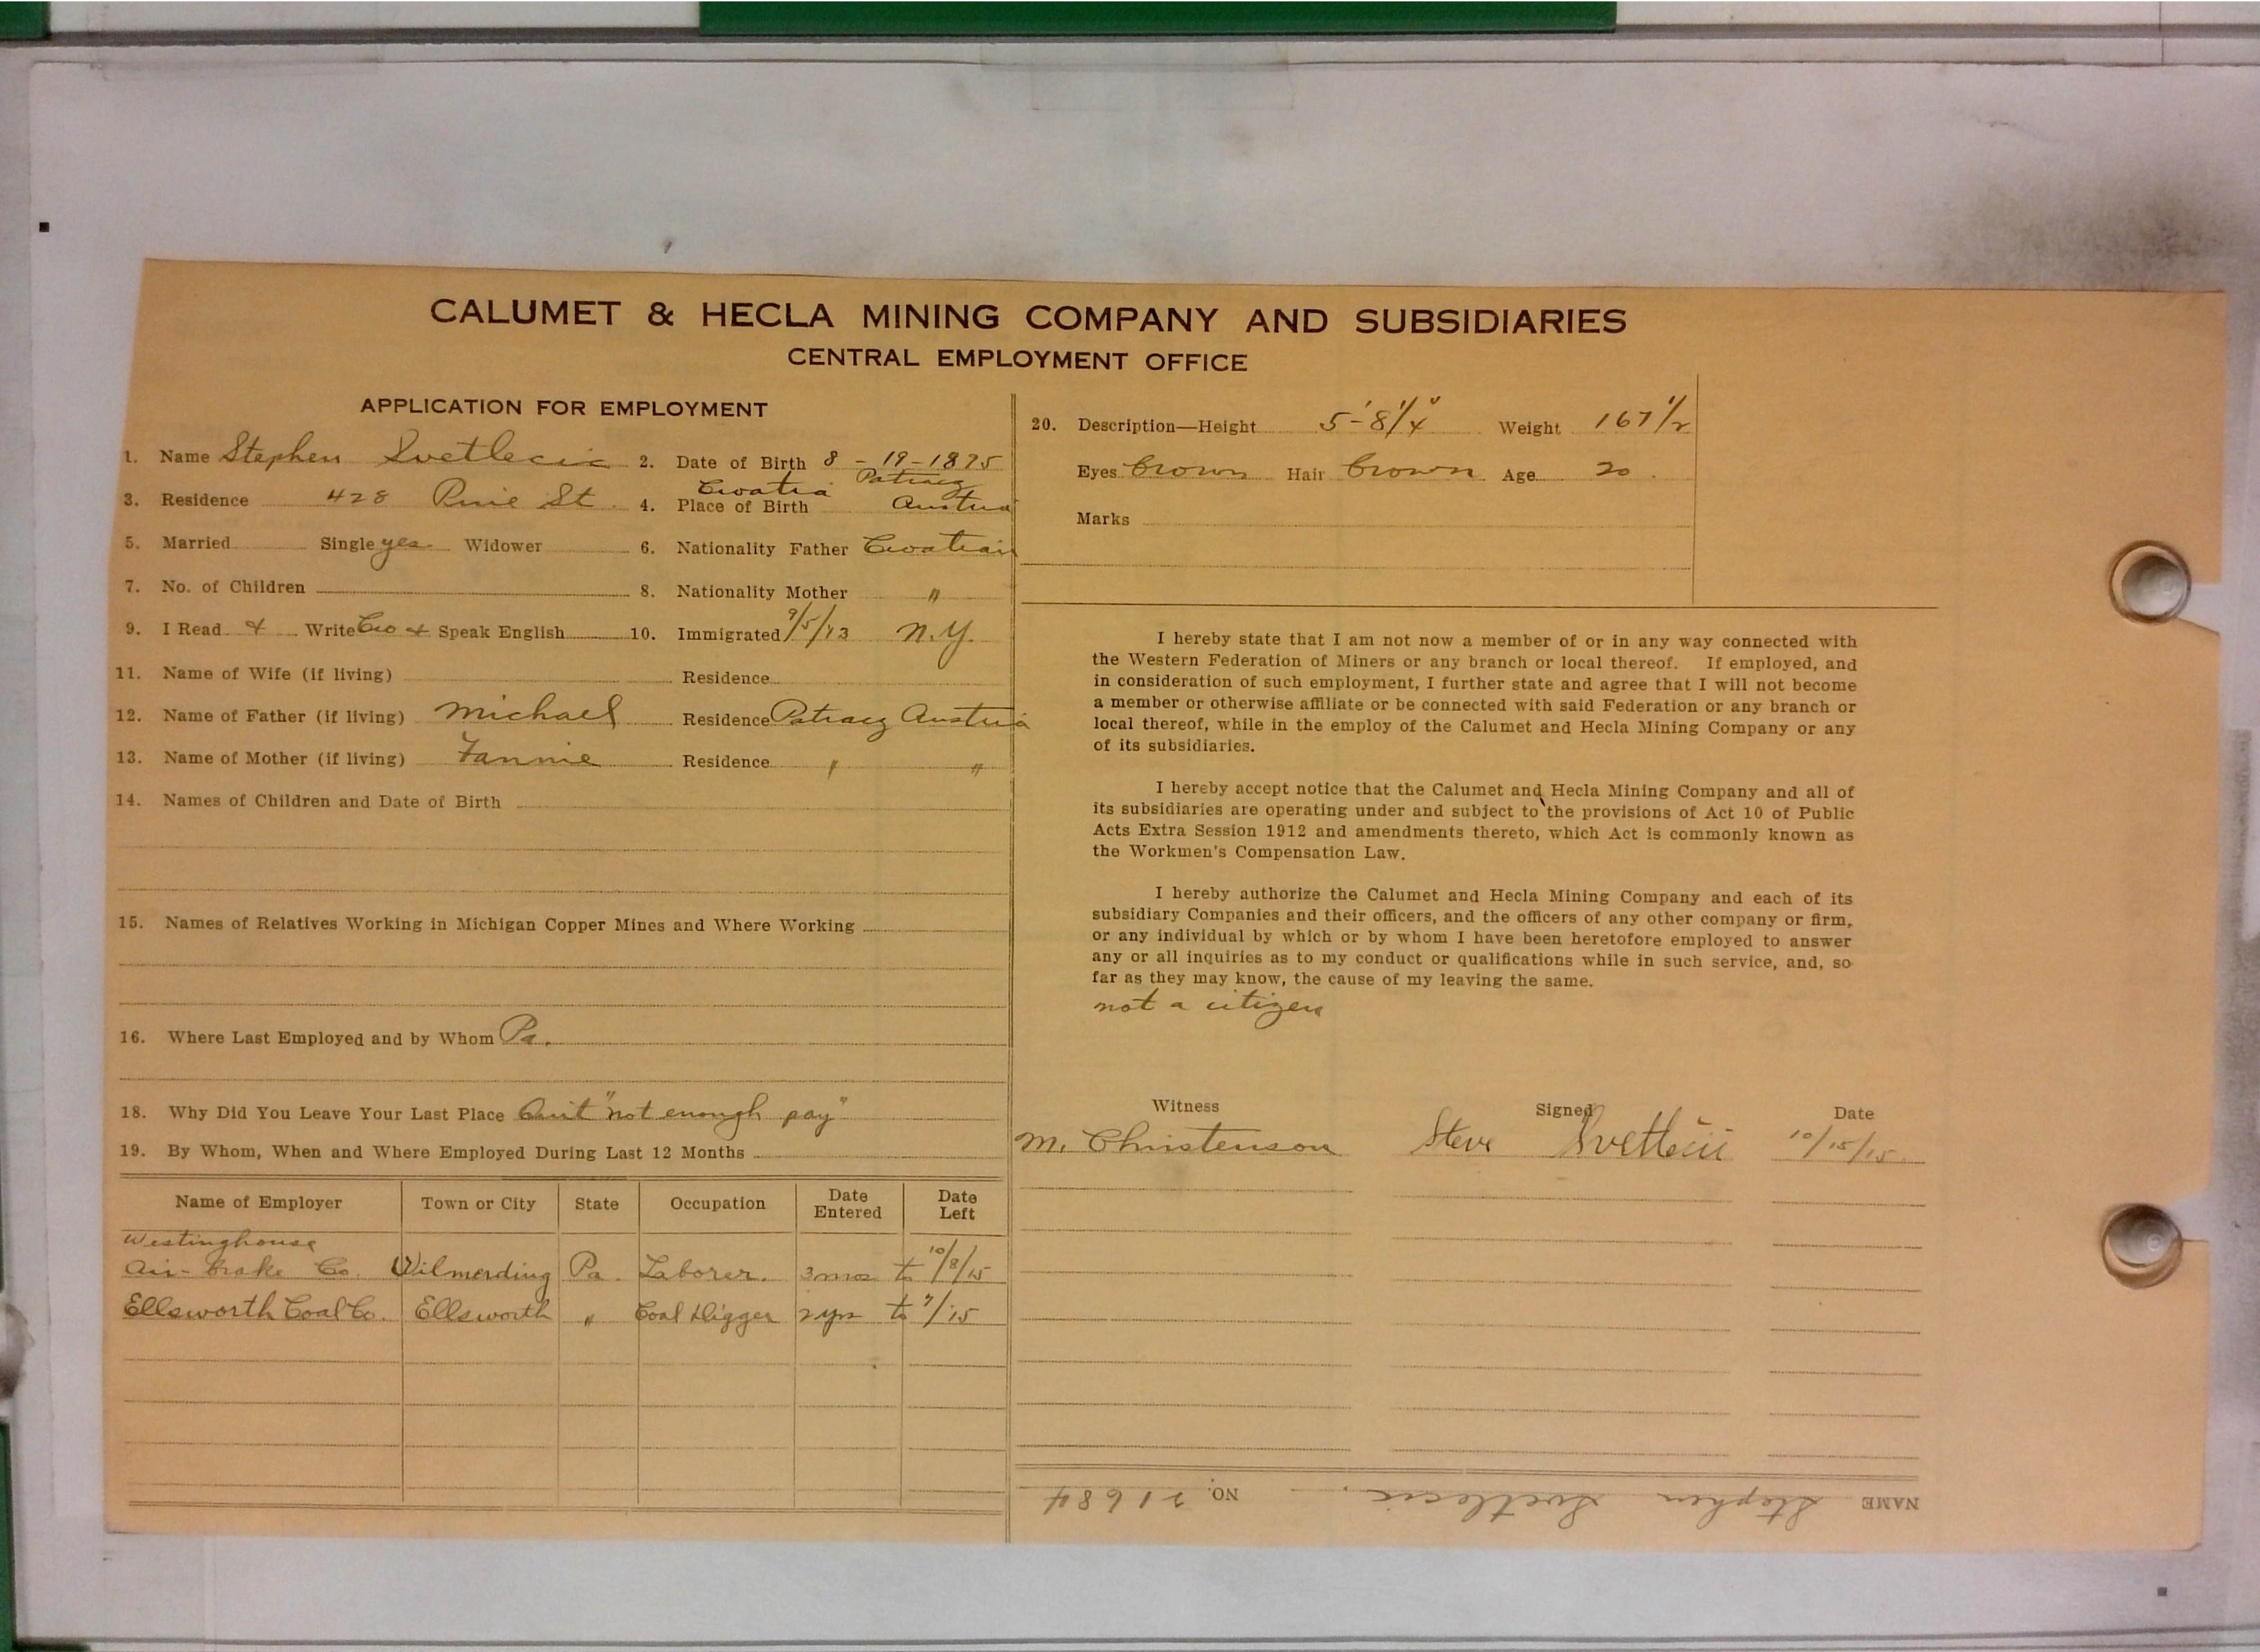 CALUMET & HECLA MINING COMPANY AND SUBSIDIARIES
CENTRAL EMPLOYMENT OFFICE
APPLICATION FOR EMPLOYMENT
1. Name Stephen Svetlecic 2. Date of Birth 8-19-1895
3. Residence 428 Pine St. 4. Place of Birth Croatia Austria
5. Married Single yes Widower 6. Nationality Father Croatian
7. No. of Children 8. Nationality Mother "
9. I Read & Write Cro & Speak English 10. Immigrated 9/5/13 N.Y.
11. Name of Wife (if living) Residence
12. Name of Father (if living) Michael Residence Austria
13. Name of Mother (if living) Fannie Residence " "
14. Names of Children and Date of Birth
15. Names of Relatives Working in Michigan Copper Mines and Where Working
16. Where Last Employed and by Whom Pa.
18. Why Did You Leave Your Last Place Quit "not enough pay"
19. By Whom, When and Where Employed During Last 12 Months
Name of Employer Town or City State Occupation Date Entered Date Left
Westinghouse
Air-Brake Co. Wilmerding Pa. Laborer. 3 mos to 10/8/15
Ellsworth Coal Co. Ellsworth " Coal Digger 2 yrs to 7/15
20. Description—Height 5'-8 1/4" Weight 167 1/2
Eyes Brown Hair Brown Age 20.
Marks
I hereby state that I am not now a member of or in any way connected with
the Western Federation of Miners or any branch or local thereof. If employed, and
in consideration of such employment, I further state and agree that I will not become
a member or otherwise affiliate or be connected with said Federation or any branch or
local thereof, while in the employ of the Calumet and Hecla Mining Company or any
of its subsidiaries.
I hereby accept notice that the Calumet and Hecla Mining Company and all of
its subsidiaries are operating under and subject to the provisions of Act 10 of Public
Acts Extra Session 1912 and amendments thereto, which Act is commonly known as
the Workmen's Compensation Law.
I hereby authorize the Calumet and Hecla Mining Company and each of its
subsidiary Companies and their officers, and the officers of any other company or firm,
or any individual by which or by whom I have been heretofore employed to answer
any or all inquiries as to my conduct or qualifications while in such service, and, so
far as they may know, the cause of my leaving the same.
not a citizen
Witness Signed Date
M. Christenson Steve 10/15/15.
NAME Stephen Svetlecic. NO. 21684